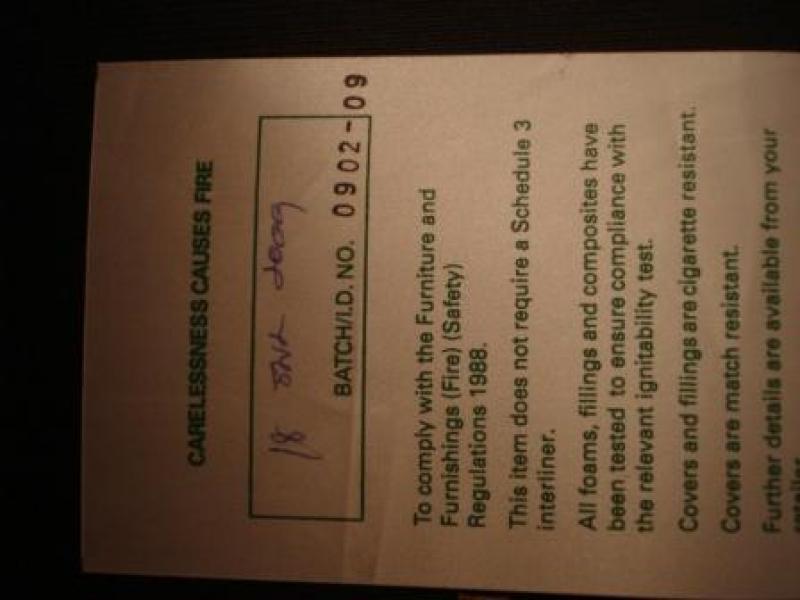 CARELESSNESS CAUSES FIRE
18
BATCH/I.D. NO. 0902-09
To comply with the Furniture and
Furnishings (Fire) (Safety)
Regulations 1988.
This item does not require a Schedule 3
interliner.
All foams, fillings and composites have
been tested to ensure compliance with
the relevant ignitability test.
Covers and fillings are cigarette resistant.
Covers are match resistant.
Further details are available from your